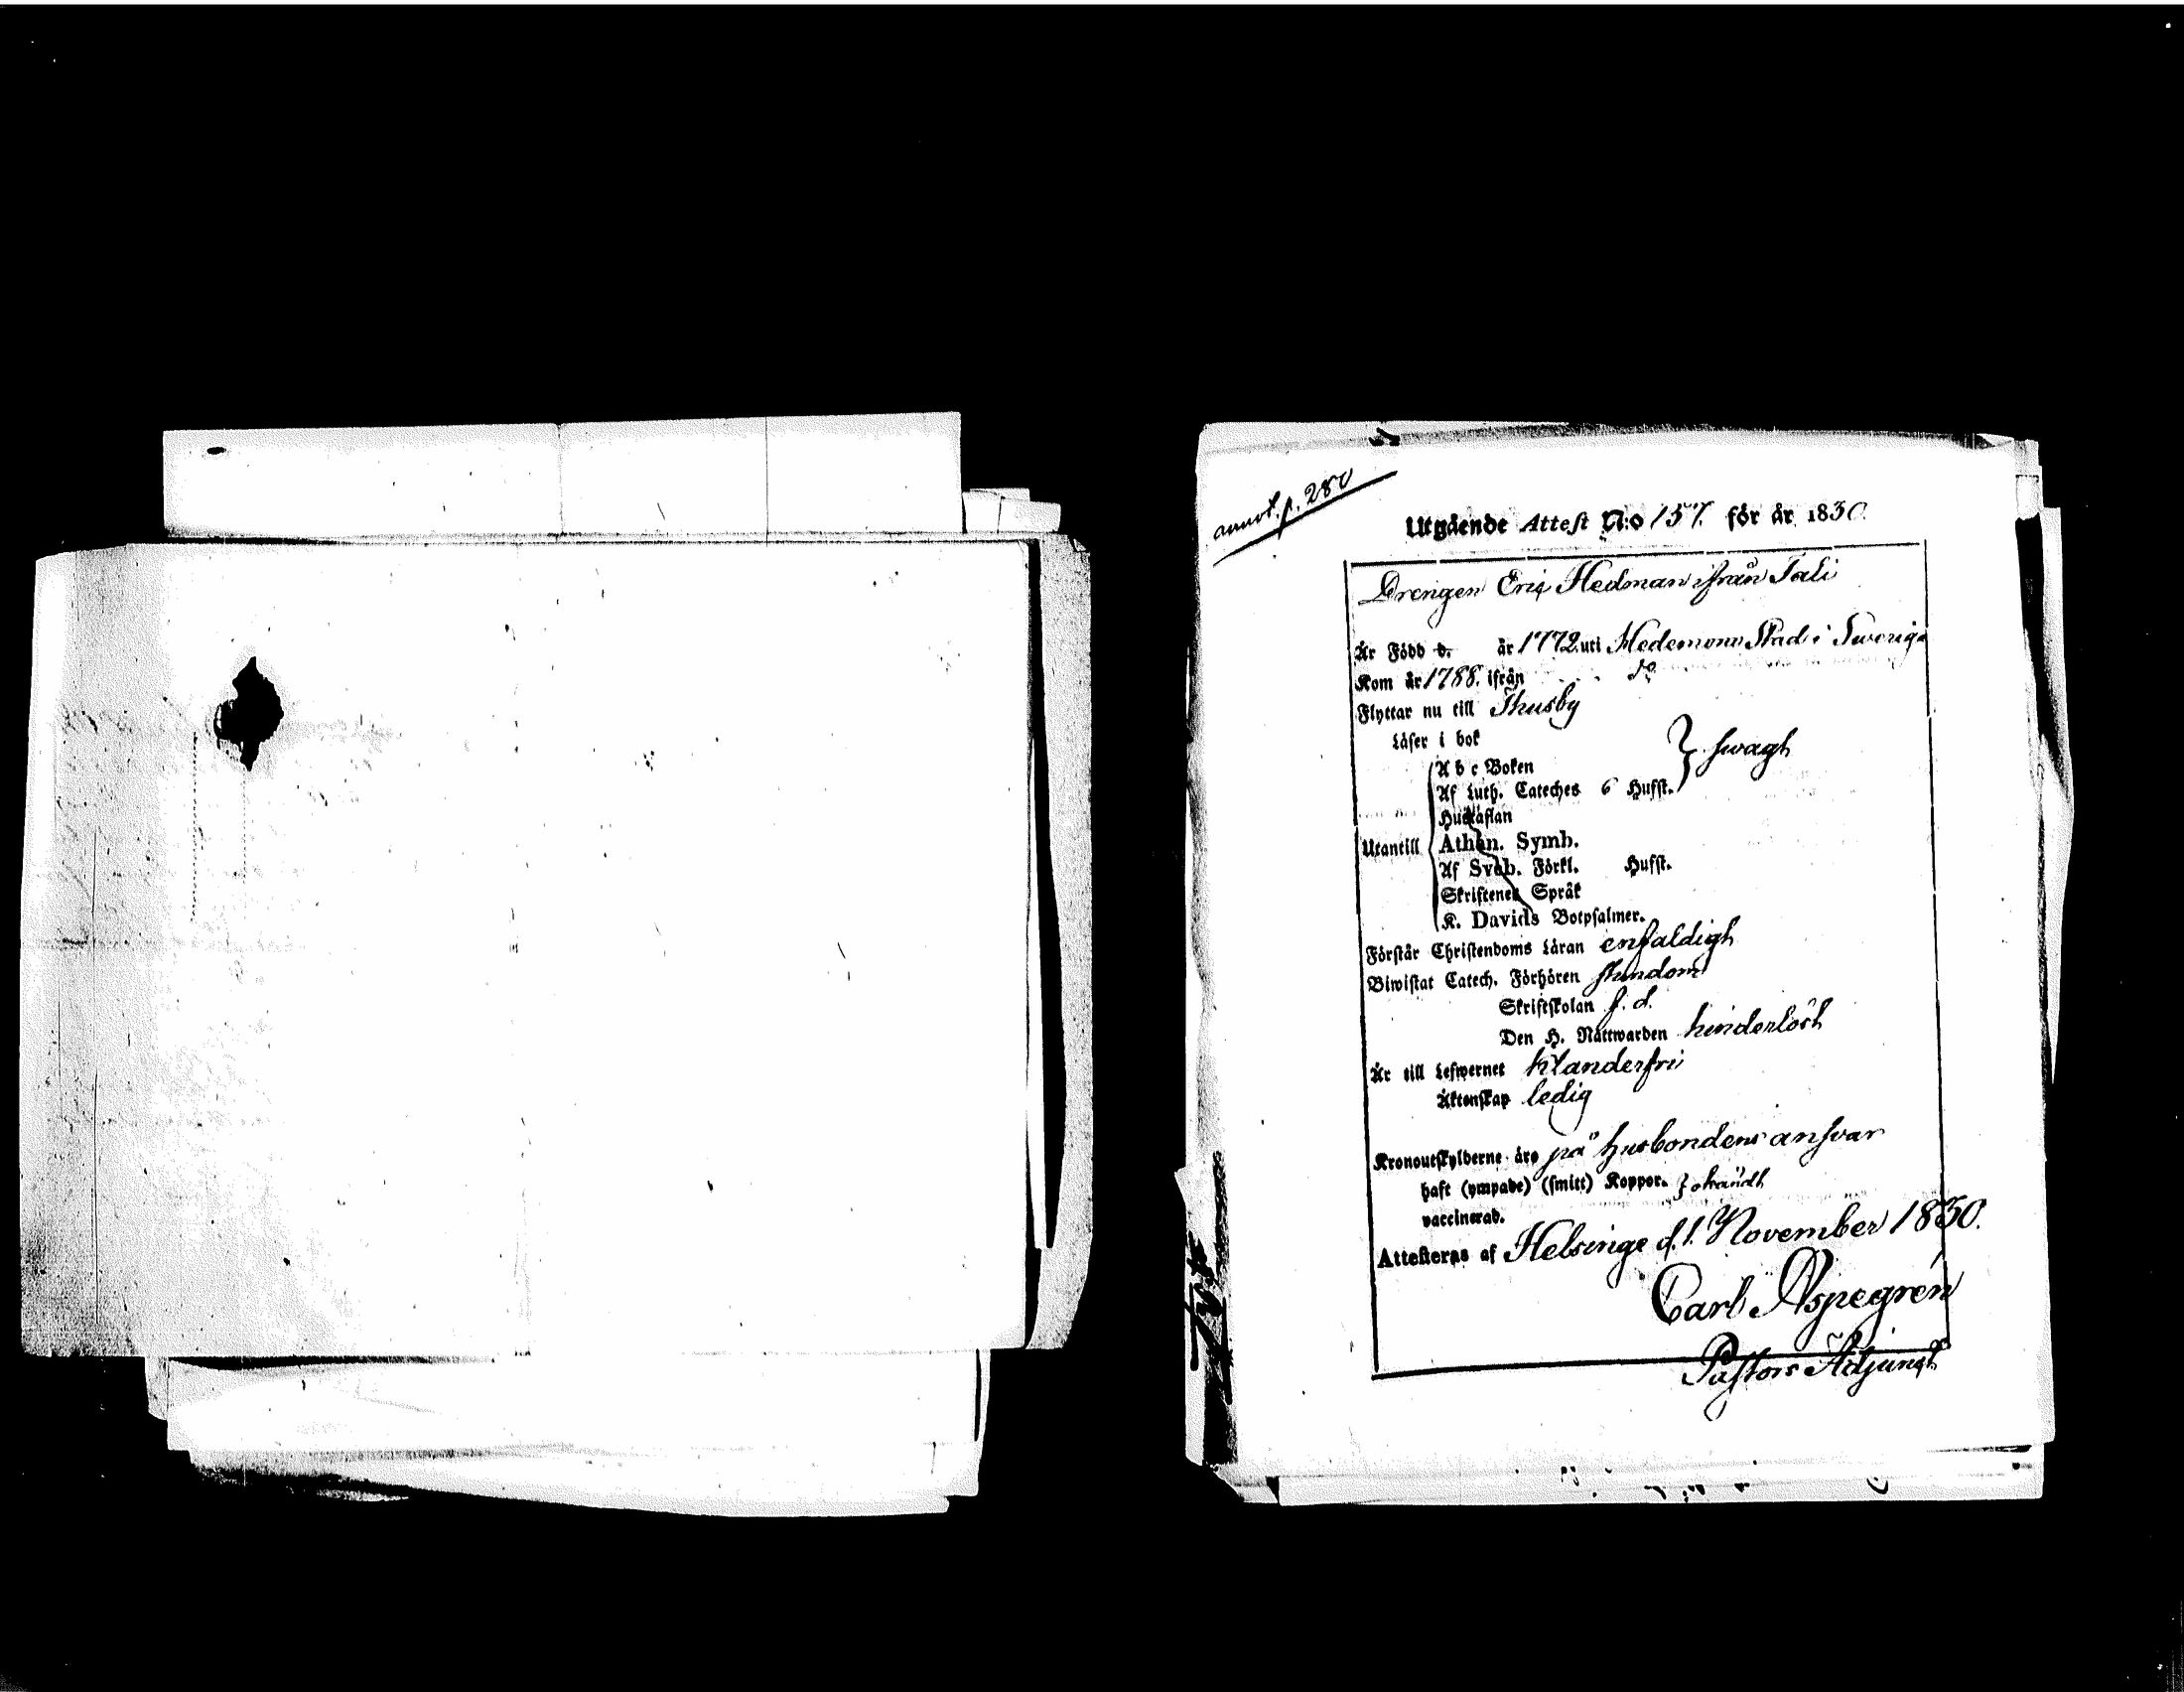 annot. p. 280
Utgående Attest N:o 157. för år 1830.
Drengen Eriq Hedman ifrån Tali
Är Född d. år 1772 uti Hedemora Stad i Swerige
Kom år 1788. ifrån do
Flyttar nu till Thusby
Läser i bok
A b c Boken } swagt
Af Luth. Cateches 6 Hufst.
Hustaflan
Utantill Athan. Symb.
Af Sveb. Förkl. Hufst.
Skriftenes Språk
K. Davids Botpsalmer.
Förstår Christendoms Läran enfaldigt
Biwistat Catech. Förhören stundom
Skriftskolan f. d.
Den H. Nattwarden hinderlöst
Är till Lefwernet klanderfri
Äktenskap ledig
Kronoutskylderne äro på husbondens answar
haft (ympade) (smitt) Koppor. } okändt
vaccinerad.
Attesteras af Helsinge d. 1. November 1830.
Carl Aspegrén
Pastors Adjunct